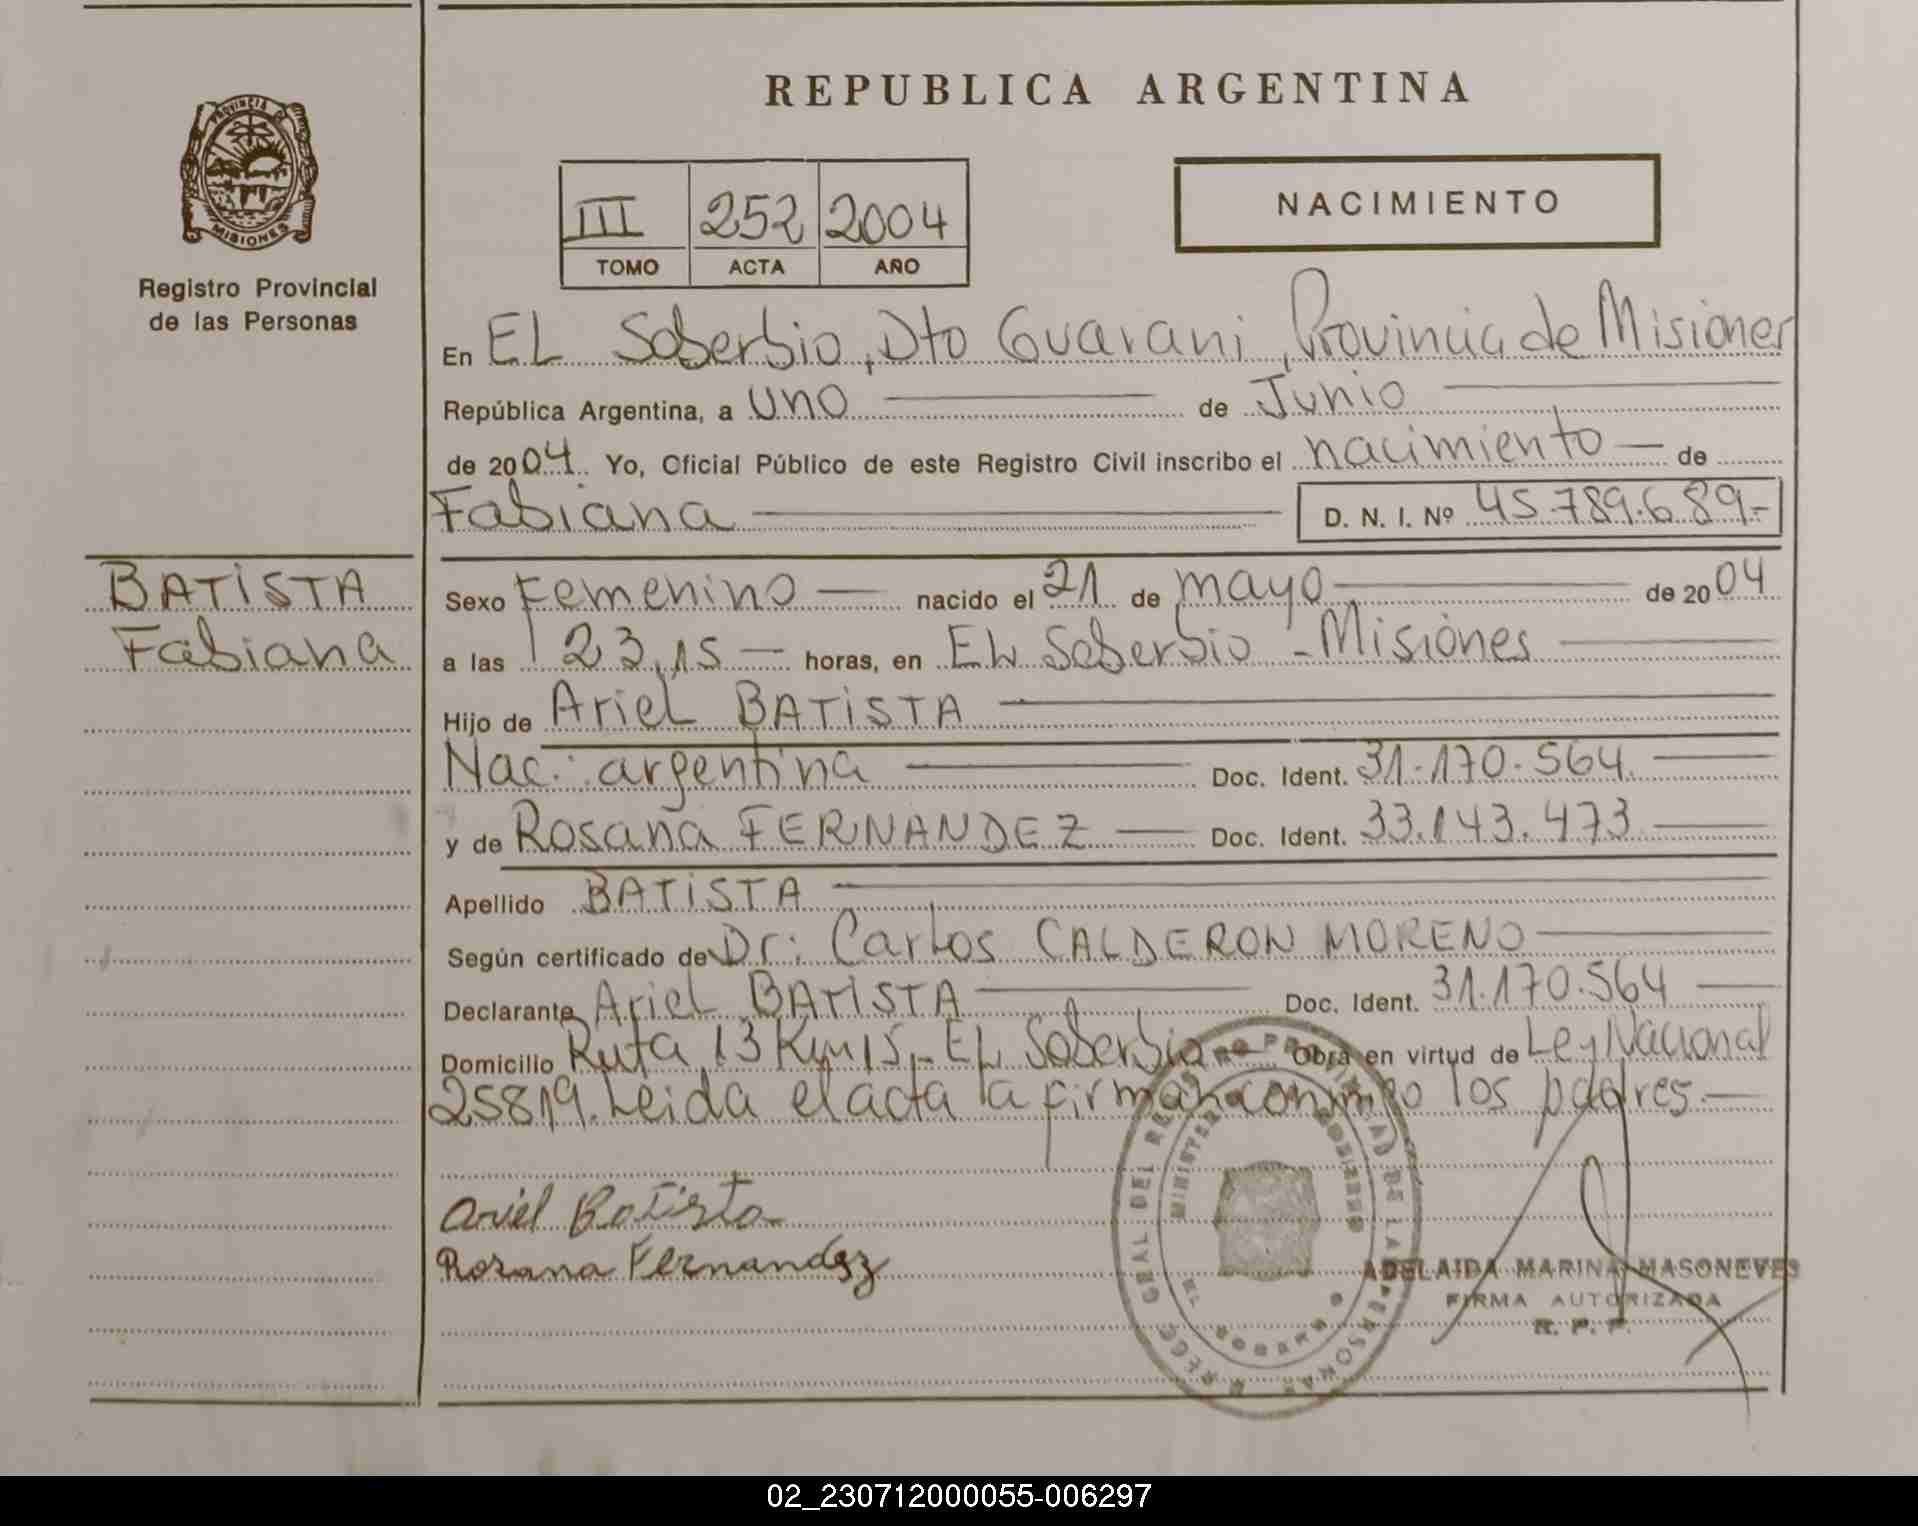 REPUBLICA ARGENTINA
PROVINCIA DE
MISIONES
Registro Provincial
de las Personas
III 252 2004
TOMO ACTA AÑO
NACIMIENTO
En EL Soberbio, Dto Guarani, Provincia de Misiones
República Argentina, a uno de Junio
de 2004. Yo, Oficial Público de este Registro Civil inscribo el nacimiento — de
Fabiana D. N. I. Nº 45.789.689.-
BATISTA
Fabiana
Sexo Femenino — nacido el 21 de mayo de 2004
a las 23,15 — horas, en EL Soberbio - Misiones
Hijo de Ariel BATISTA
Nac.: argentina Doc. Ident. 31.170.564
y de Rosana FERNANDEZ — Doc. Ident. 33.143.473
Apellido BATISTA
Según certificado de Dr: Carlos CALDERON MORENO
Declarante Ariel BATISTA Doc. Ident. 31.170.564
Domicilio Ruta 13 Km 15 - EL Soberbio — Obra en virtud de Ley Nacional
25819. Leida el acta la firman conmigo los padres. —
Ariel Batista
Rosana Fernandez
ADELAIDA MARINA MASONEVES
FIRMA AUTORIZADA
R. P. P.
GRAL DEL DE LAS PERSONAS
02_230712000055-006297